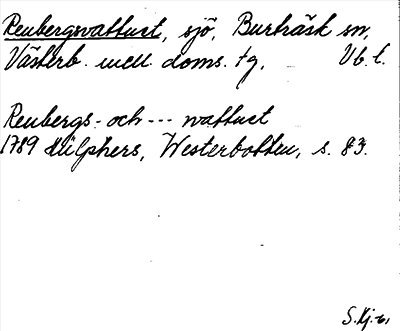 Renbergsvattnet, sjö, Burträsk sn,
Västerb. mell. doms. tg, Vb. l.
Renbergs- och --- wattnet
1789 Hülphers, Westerbotten, s. 83.